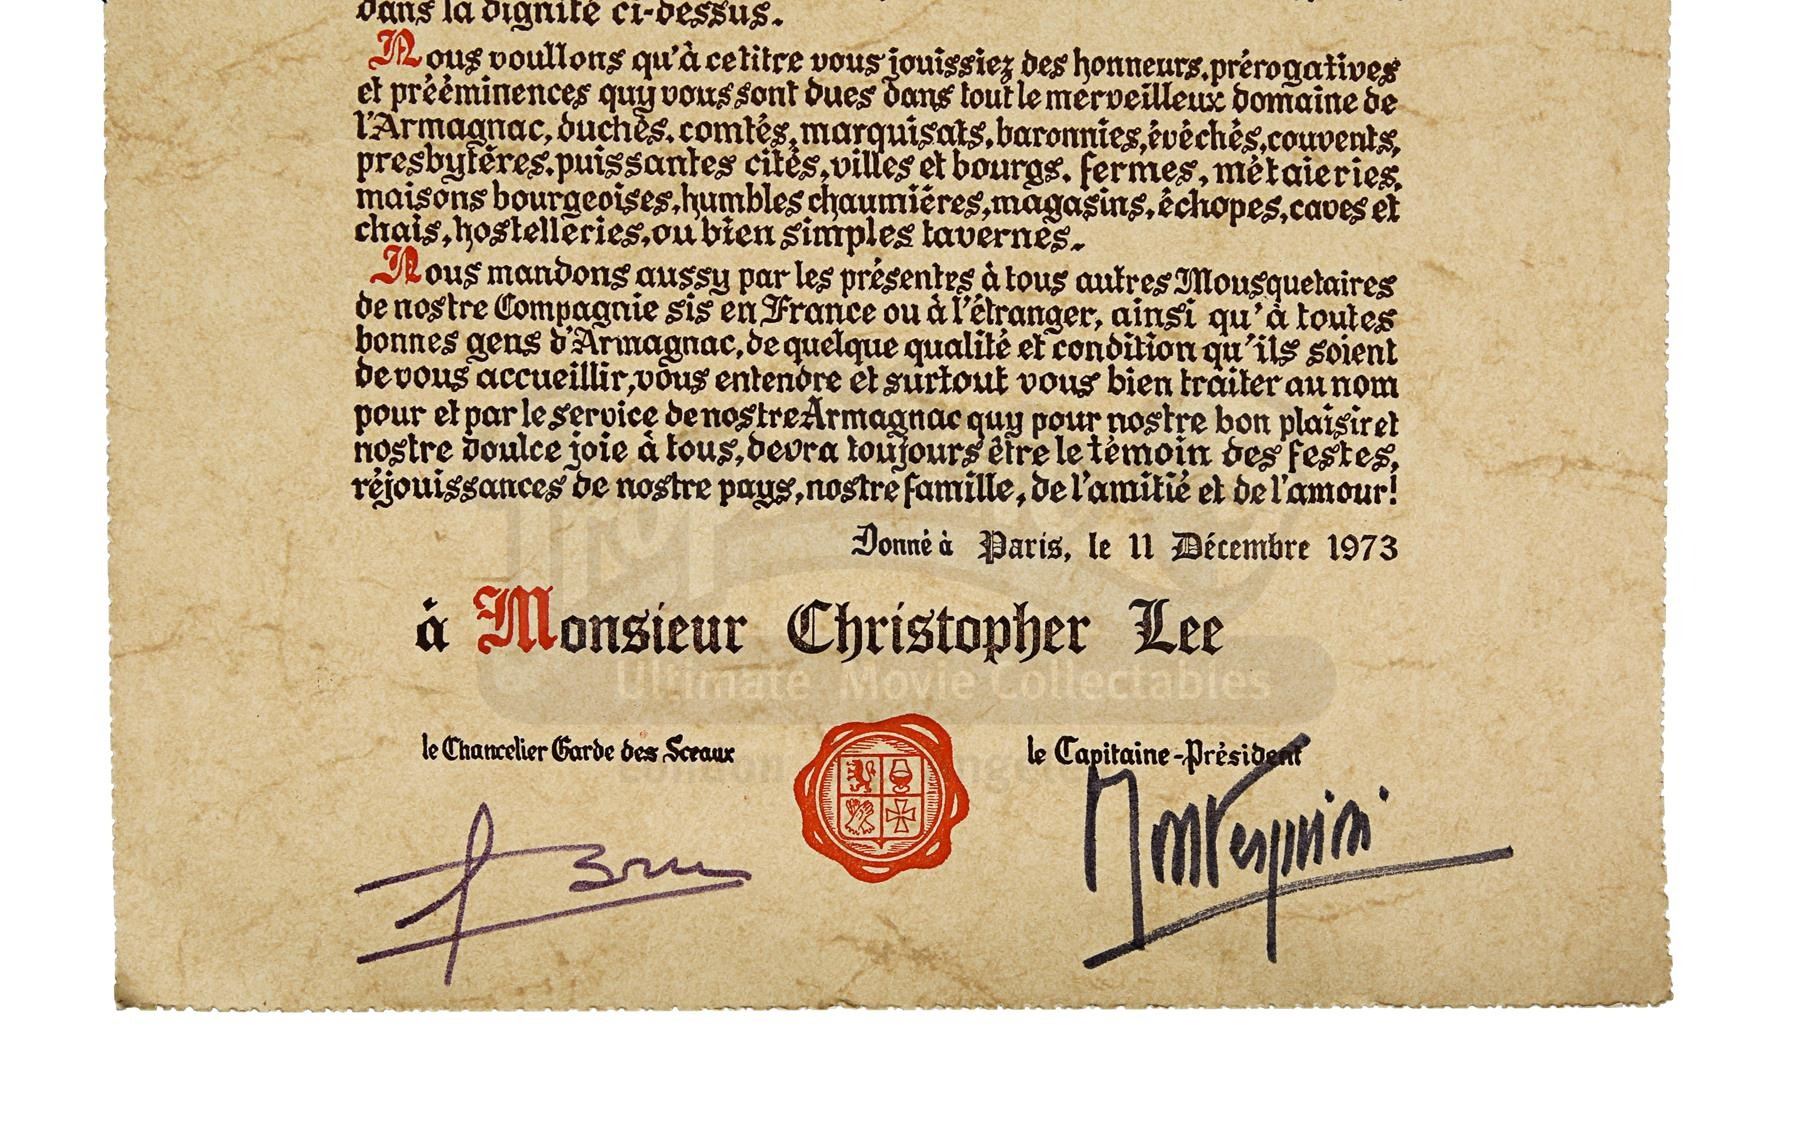 dans la dignité ci-dessus.
Nous voullons qu'à ce titre vous jouissiez des honneurs, prérogatives
et prééminences quy vous sont dues dans tout le merveilleux domaine de
l'Armagnac, duchés, comtés, marquisats, baronnies, évéchés, couvents,
presbytéres, puissantes cités, villes et bourgs, fermes, métaieries,
maisons bourgeoises, humbles chaumiéres, magasins, échopes, caves et
chais, hostelleries, ou bien simples tavernes.
Nous mandons aussy par les présentes à tous autres Mousquetaires
de nostre Compagnie sis en France ou à l'étranger, ainsi qu'à toutes
bonnes gens d'Armagnac, de quelque qualité et condition qu'ils soient
de vous accueillir, vous entendre et surtout vous bien traiter au nom
pour et par le service de nostre Armagnac quy pour nostre bon plaisir et
nostre doulce joie à tous, devra toujours être le témoin des festes,
réjouissances de nostre pays, nostre famille, de l'amitié et de l'amour!
Donné à Paris, le 11 Décembre 1973
à Monsieur Christopher Lee
Ultimate Movie Collectables
le Chancelier Garde des Sceaux
le Capitaine-Président
London
Montesquiou